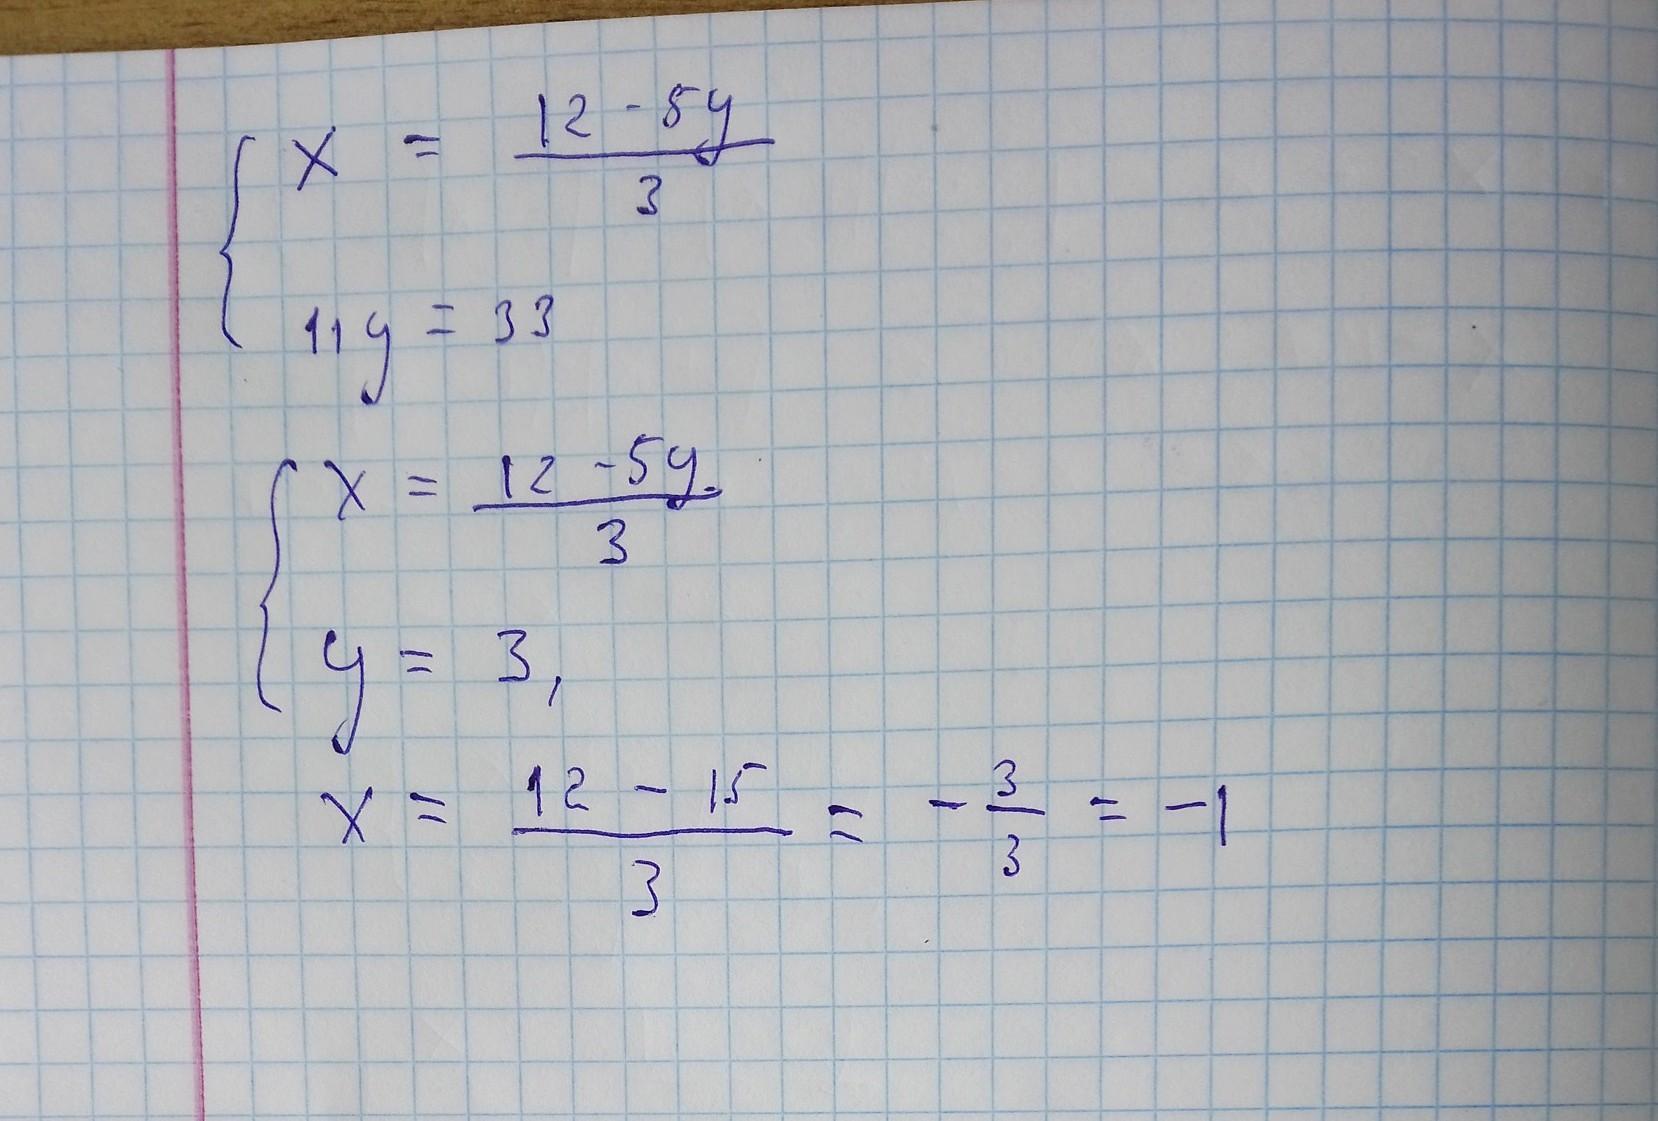 x = \frac{12 - 5y}{3}
11y = 33
x = \frac{12 - 5y}{3}
y = 3,
x = \frac{12 - 15}{3} = -\frac{3}{3} = -1